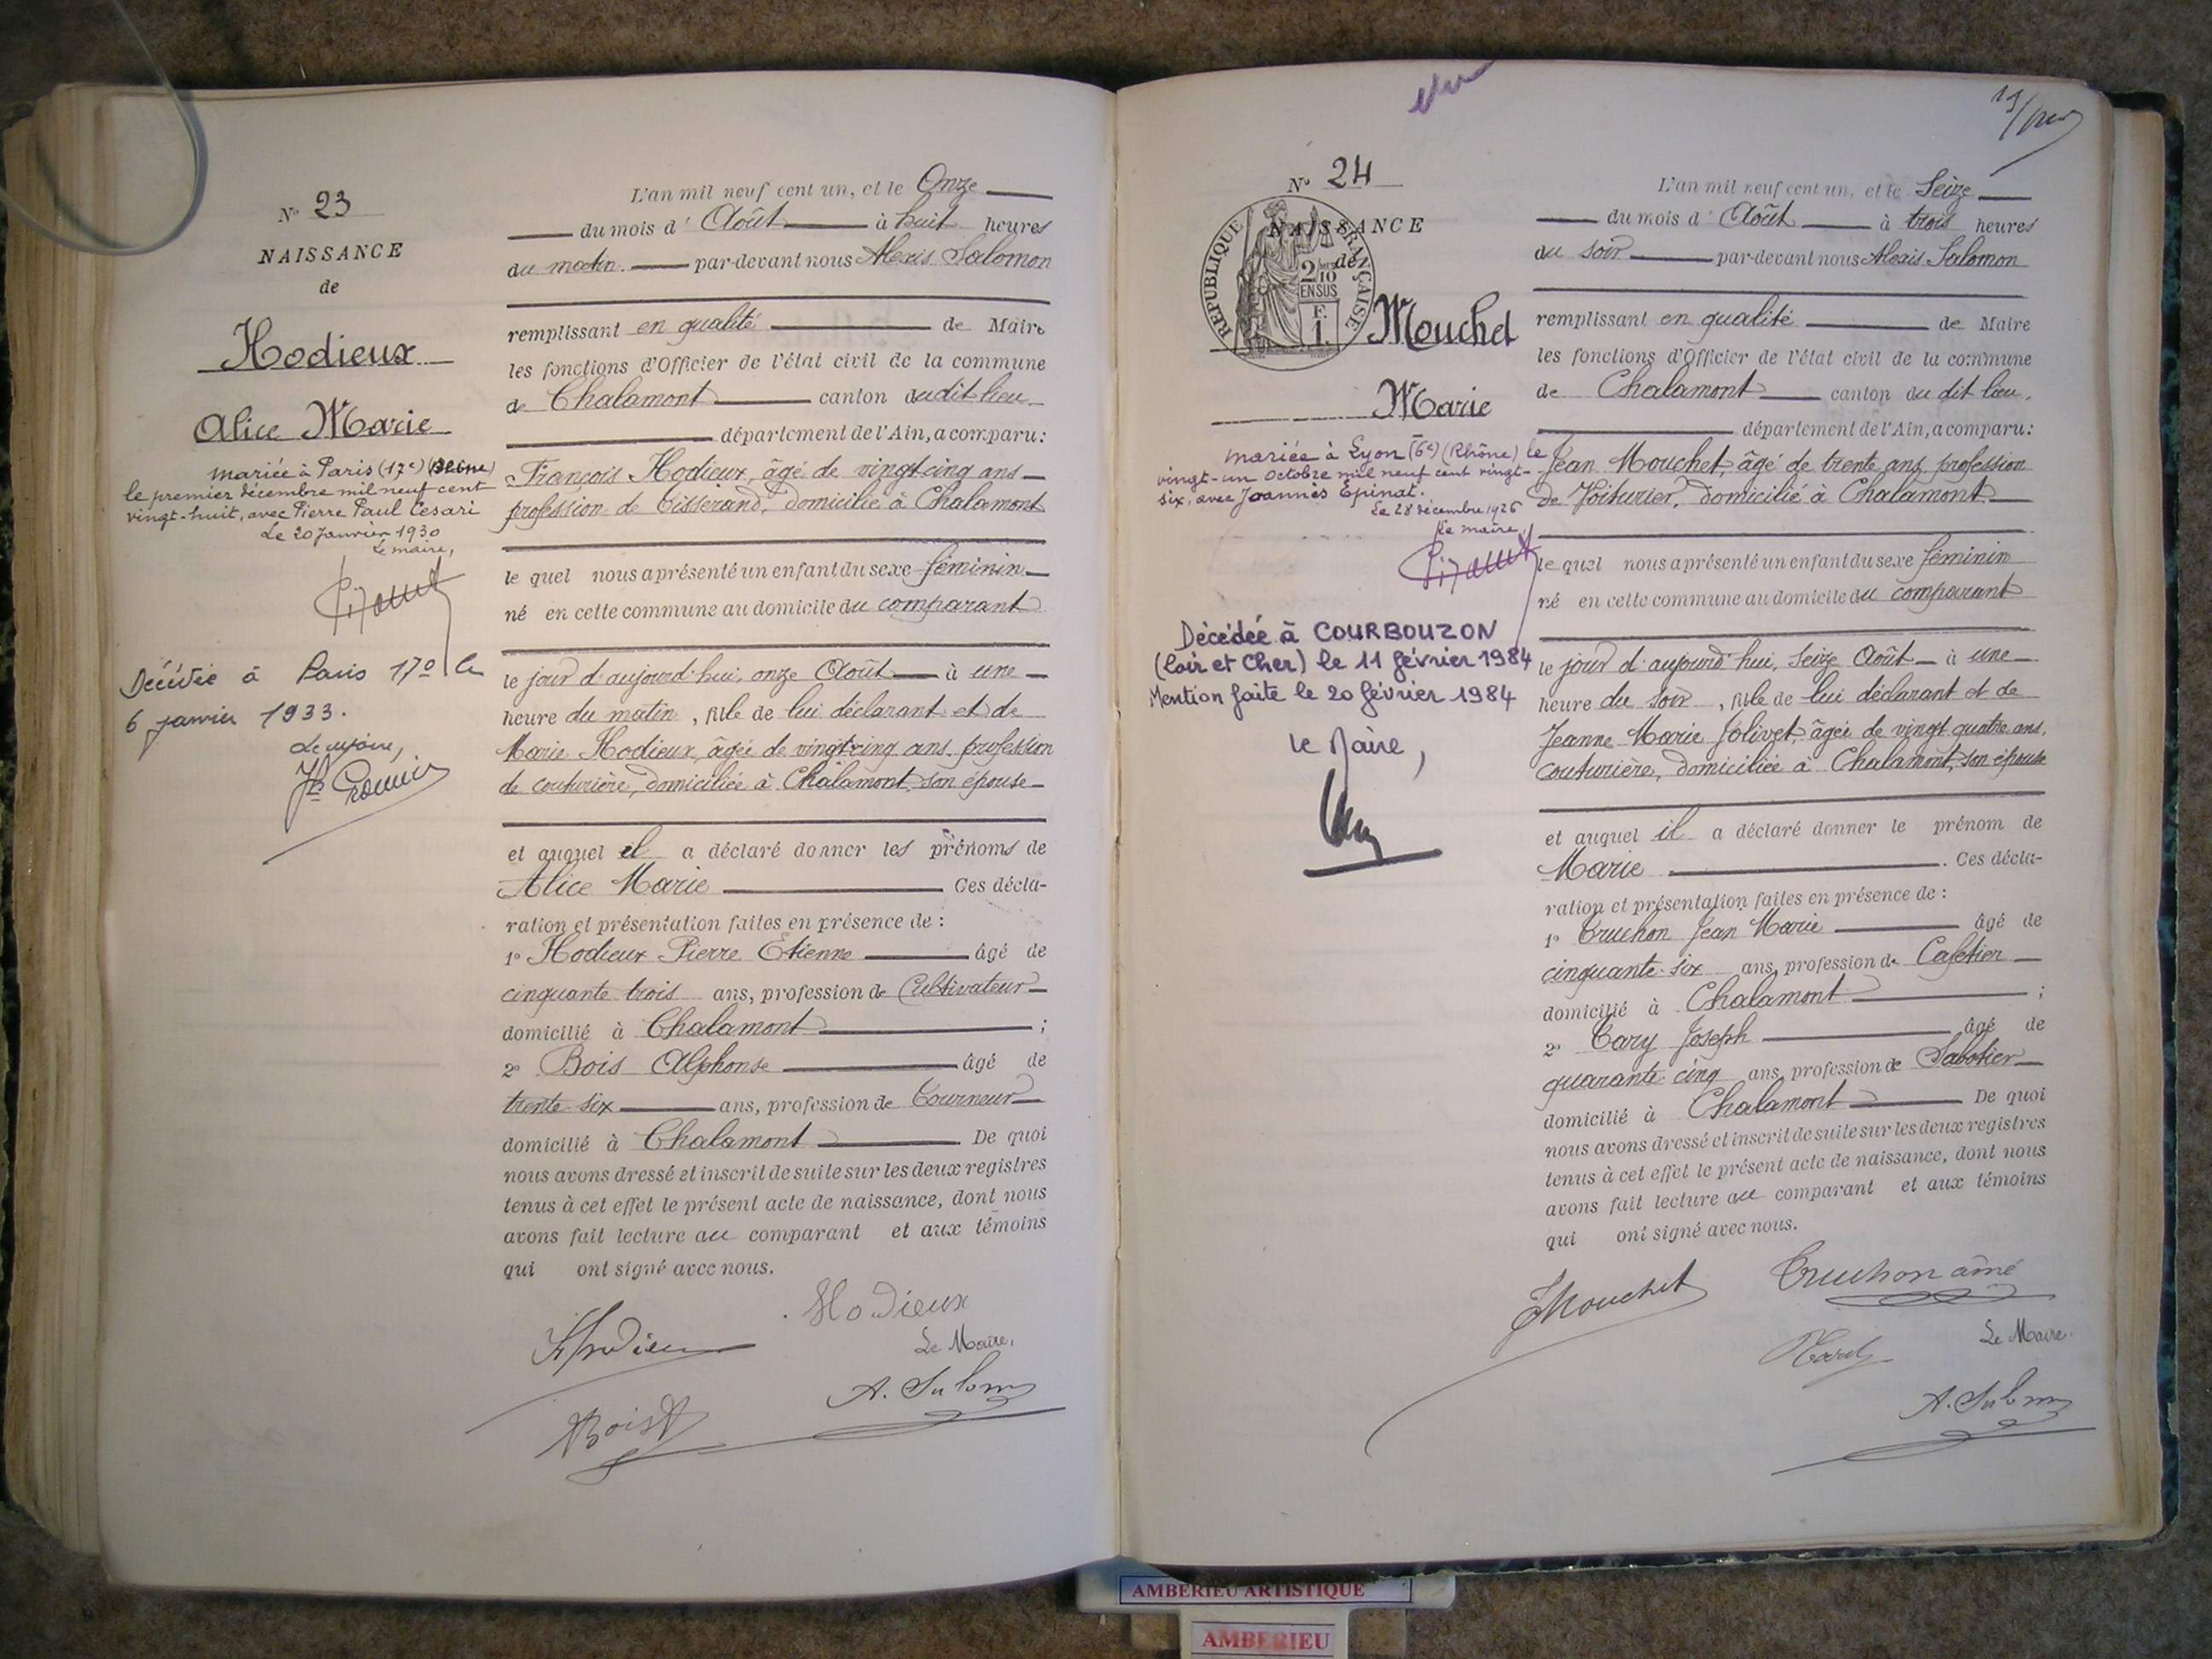 N° 23
NAISSANCE
de
Hodieux
Alice Marie
mariée à Paris (17e) (Seine)
le premier décembre mil neuf cent
vingt-huit, avec Pierre Paul Cesari
Le 20 Janvier 1930
Le maire,
Décédée à Paris 17e le
6 janvier 1933.
Le maire,
L'an mil neuf cent un, et le Onze
du mois d'Août à huit heures
du matin par-devant nous Alexis Salomon
remplissant en qualité de Maire
les fonctions d'Officier de l'état civil de la commune
de Chalamont canton dudit lieu
département de l'Ain, a comparu:
François Hodieux, âgé de vingt cinq ans
profession de Tisserand, domicilié à Chalamont
le quel nous a présenté un enfant du sexe féminin
né en cette commune au domicile du comparant
le jour d'aujourd'hui, onze Août à une
heure du matin, fille de lui déclarant et de
Marie Hodieux, âgée de vingt cinq ans, profession
de couturière, domiciliée à Chalamont, son épouse
et auquel il a déclaré donner les prénoms de
Alice Marie Ces décla-
ration et présentation faites en présence de :
1° Hodieux Pierre Etienne âgé de
cinquante trois ans, profession de Cultivateur
domicilié à Chalamont ;
2° Bois Alphonse âgé de
trente-six ans, profession de Tourneur
domicilié à Chalamont De quoi
nous avons dressé et inscrit de suite sur les deux registres
tenus à cet effet le présent acte de naissance, dont nous
avons fait lecture au comparant et aux témoins
qui ont signé avec nous.
Hodieux
Hodieux
Le Maire,
A. Salomon
Bois A
N° 24
NAISSANCE
de
RÉPUBLIQUE FRANÇAISE
2/10
EN SUS
F.
1.
Mouchet
Marie
mariée à Lyon (6e) (Rhône) le
vingt-un Octobre mil neuf cent vingt-
six, avec Joannès Épinat.
Le 28 décembre 1926
Le maire,
Décédée à COURBOUZON
(Loir et Cher) le 11 février 1984
Mention faite le 20 février 1984
le Maire,
L'an mil neuf cent un, et le Seize
du mois d'Août à trois heures
du soir par-devant nous Alexis Salomon
remplissant en qualité de Maire
les fonctions d'Officier de l'état civil de la commune
de Chalamont canton du dit lieu.
département de l'Ain, a comparu:
Jean Mouchet, âgé de trente ans, profession
de Voiturier, domicilié à Chalamont
le quel nous a présenté un enfant du sexe féminin
né en cette commune au domicile du comparant
le jour d'aujourd'hui, seize Août à une
heure du soir, fille de lui déclarant et de
Jeanne Marie Jolivet, âgée de vingt quatre ans,
couturière, domiciliée à Chalamont, son épouse
et auquel il a déclaré donner le prénom de
Marie . Ces décla-
ration et présentation faites en présence de :
1° Truchon Jean Marie âgé de
cinquante-six ans, profession de Cafetier
domicilié à Chalamont ;
2° Tary Joseph âgé de
quarante-cinq ans, profession de Sabotier
domicilié à Chalamont De quoi
nous avons dressé et inscrit de suite sur les deux registres
tenus à cet effet le présent acte de naissance, dont nous
avons fait lecture au comparant et aux témoins
qui ont signé avec nous.
JMouchet
Truchon aîné
Le Maire.
A. Salomon
AMBERIEU ARTISTIQUE
AMBERIEU